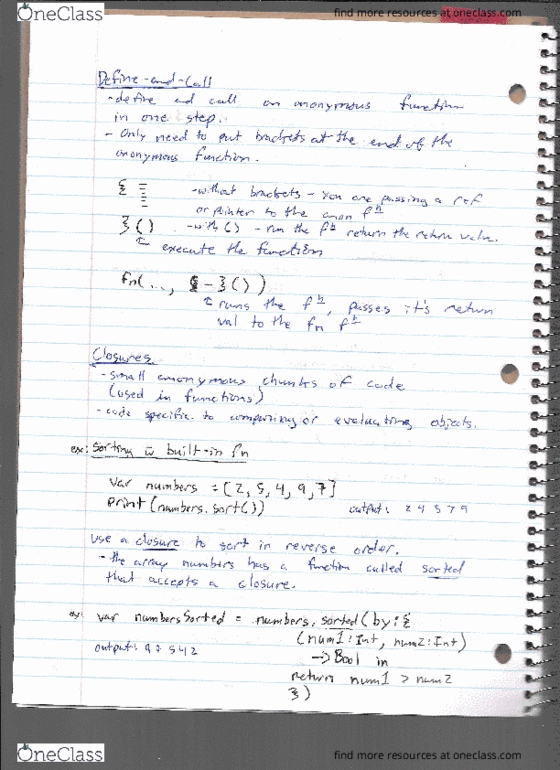 OneClass
find more resources at oneclass.com
Define-and-Call
- define and call an anonymous function
in one step.
- Only need to put brackets at the end of the
anonymous function.
{ - without brackets - You are passing a ref
or pointer to the anon fⁿ
} () - with () - run the fⁿ return the return value.
execute the function
fn(..., { - } ())
runs the fⁿ, passes it's return
val to the fn fⁿ
Closures
- small anonymous chunks of code
(used in functions)
- code specific to comparing or evaluating objects.
ex: Sorting w built-in fn
var numbers = [2, 5, 4, 9, 7]
print(numbers.sort())
output: 2 4 5 7 9
Use a closure to sort in reverse order.
- the array numbers has a function called sorted
that accepts a closure.
ex: var numbersSorted = numbers.sorted(by: {
(num1: Int, num2: Int)
output: 9 7 5 4 2
-> Bool in
return num1 > num2
})
OneClass
find more resources at oneclass.com